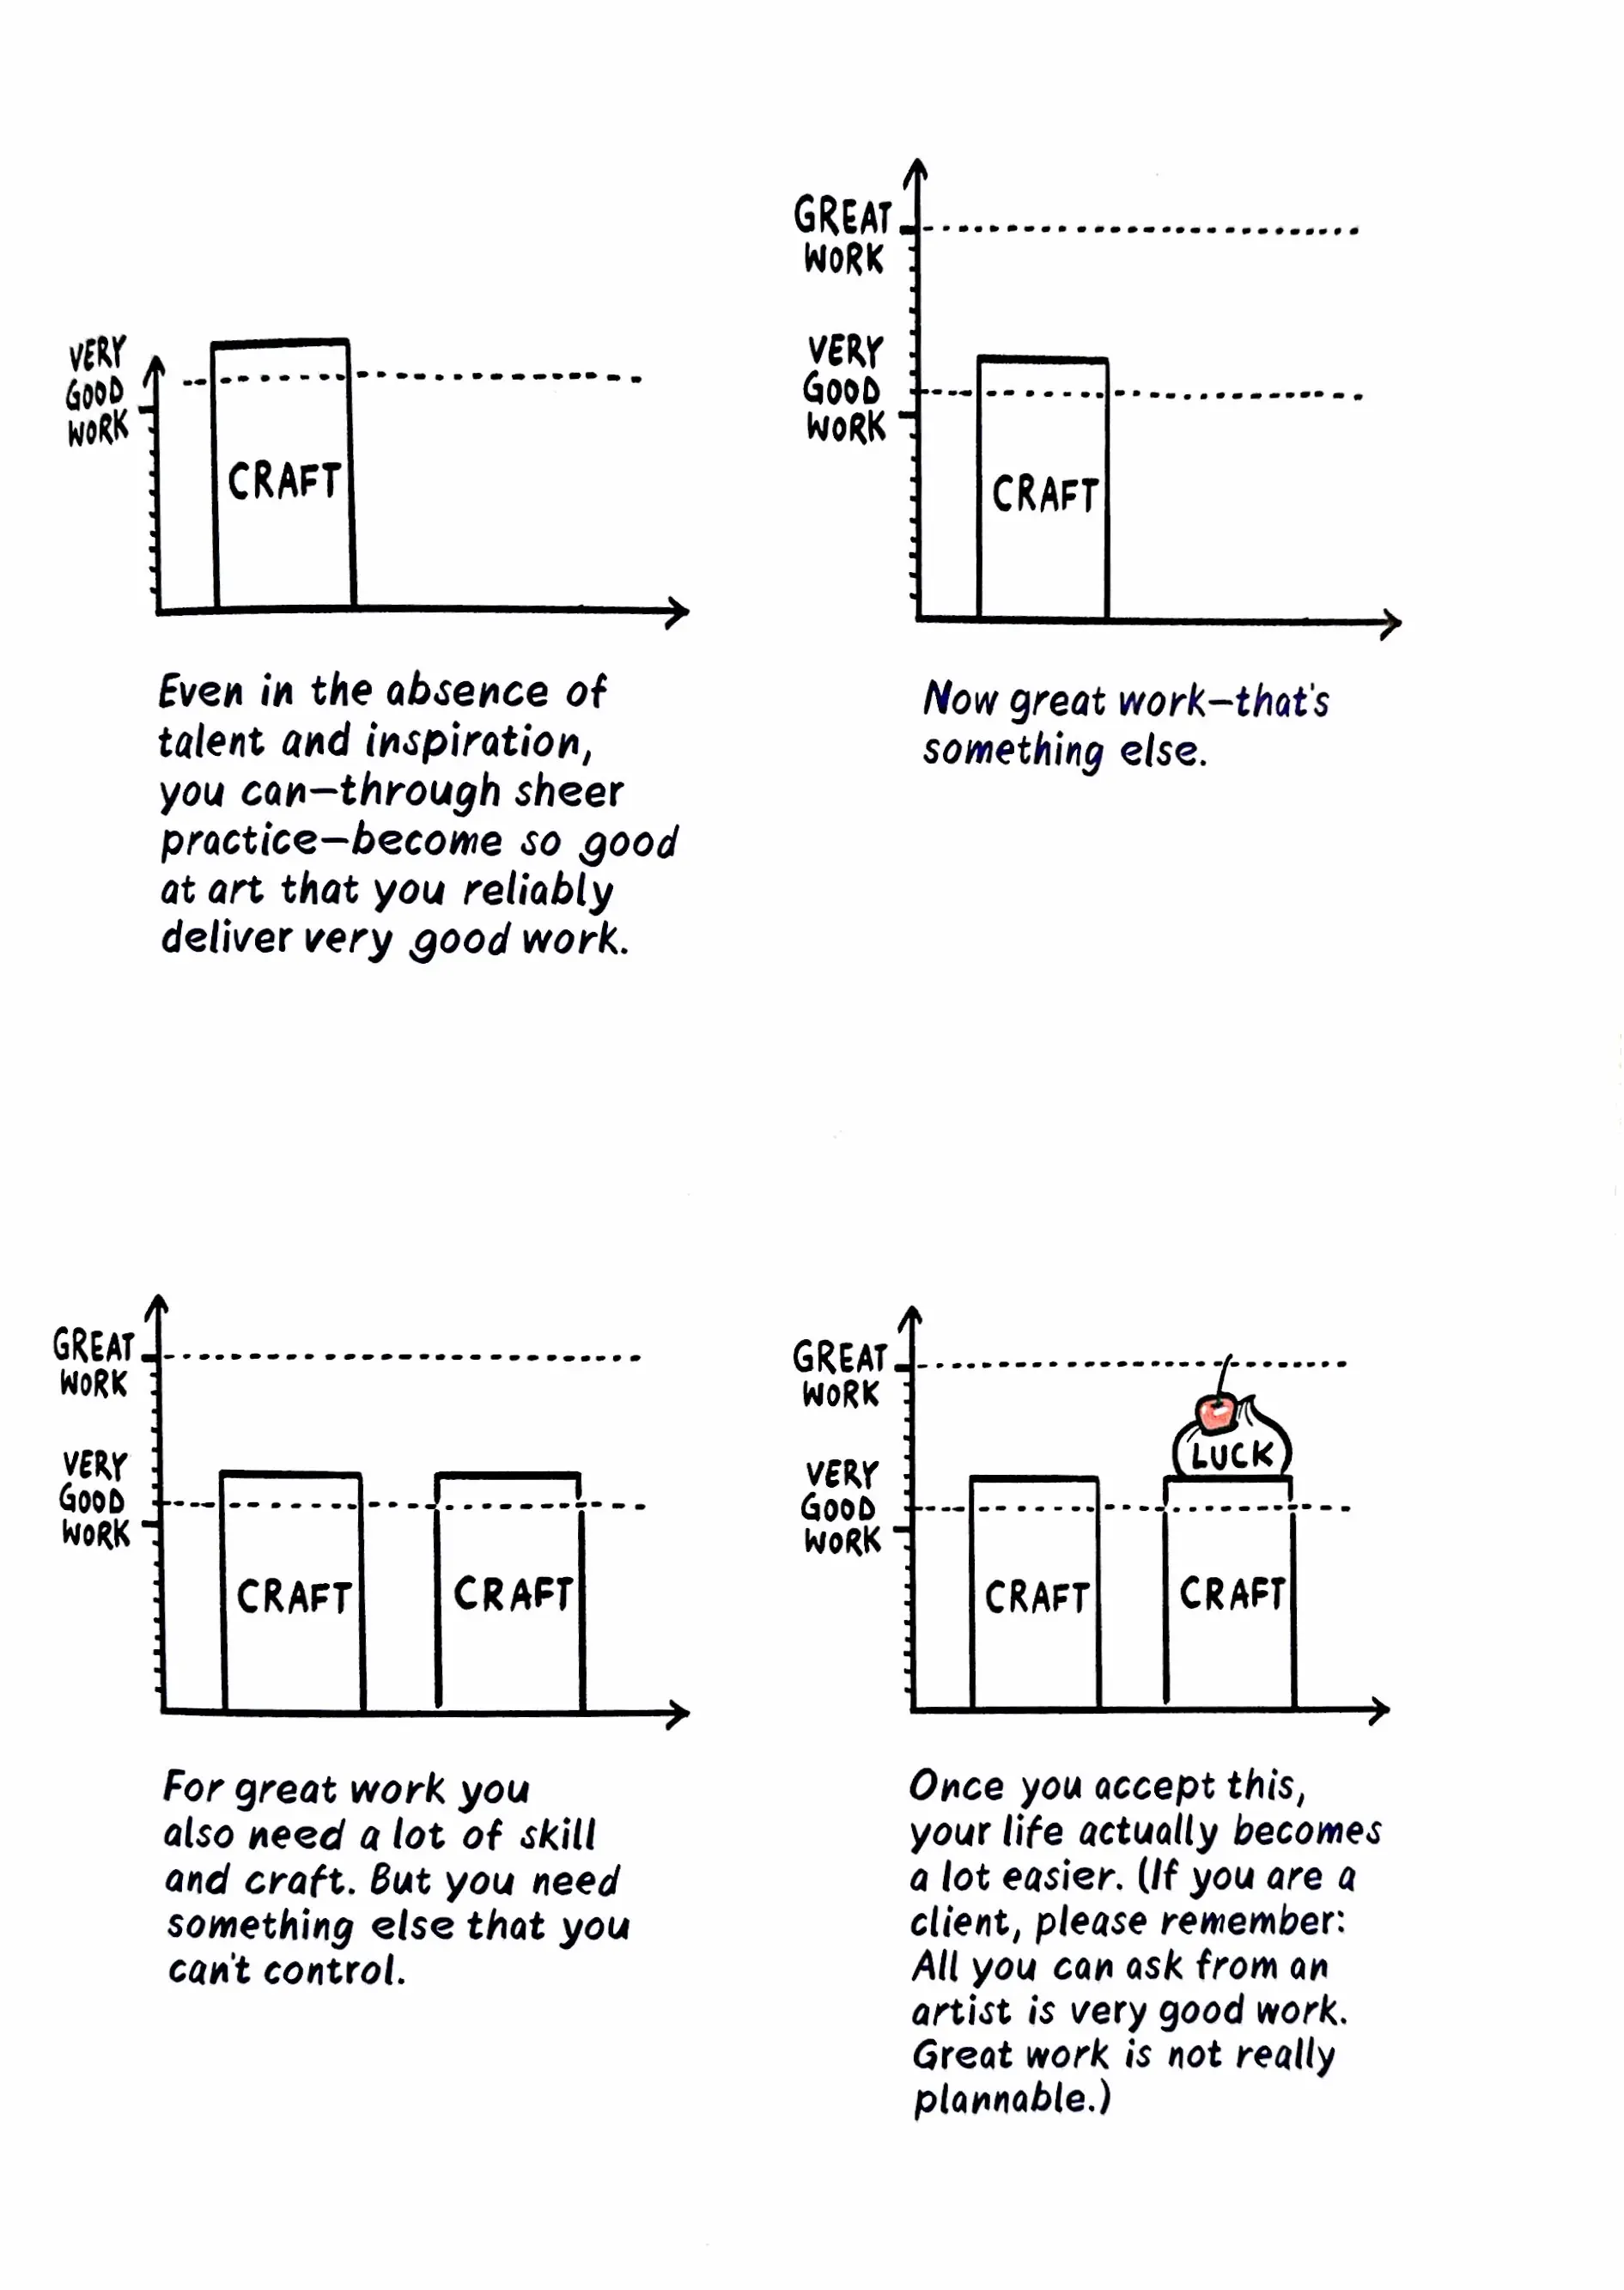 VERY
GOOD
WORK
CRAFT
Even in the absence of
talent and inspiration,
you can—through sheer
practice—become so good
at art that you reliably
deliver very good work.
GREAT
WORK
VERY
GOOD
WORK
CRAFT
Now great work—that's
something else.
GREAT
WORK
VERY
GOOD
WORK
CRAFT
CRAFT
For great work you
also need a lot of skill
and craft. But you need
something else that you
can't control.
GREAT
WORK
VERY
GOOD
WORK
LUCK
CRAFT
CRAFT
Once you accept this,
your life actually becomes
a lot easier. (If you are a
client, please remember:
All you can ask from an
artist is very good work.
Great work is not really
plannable.)